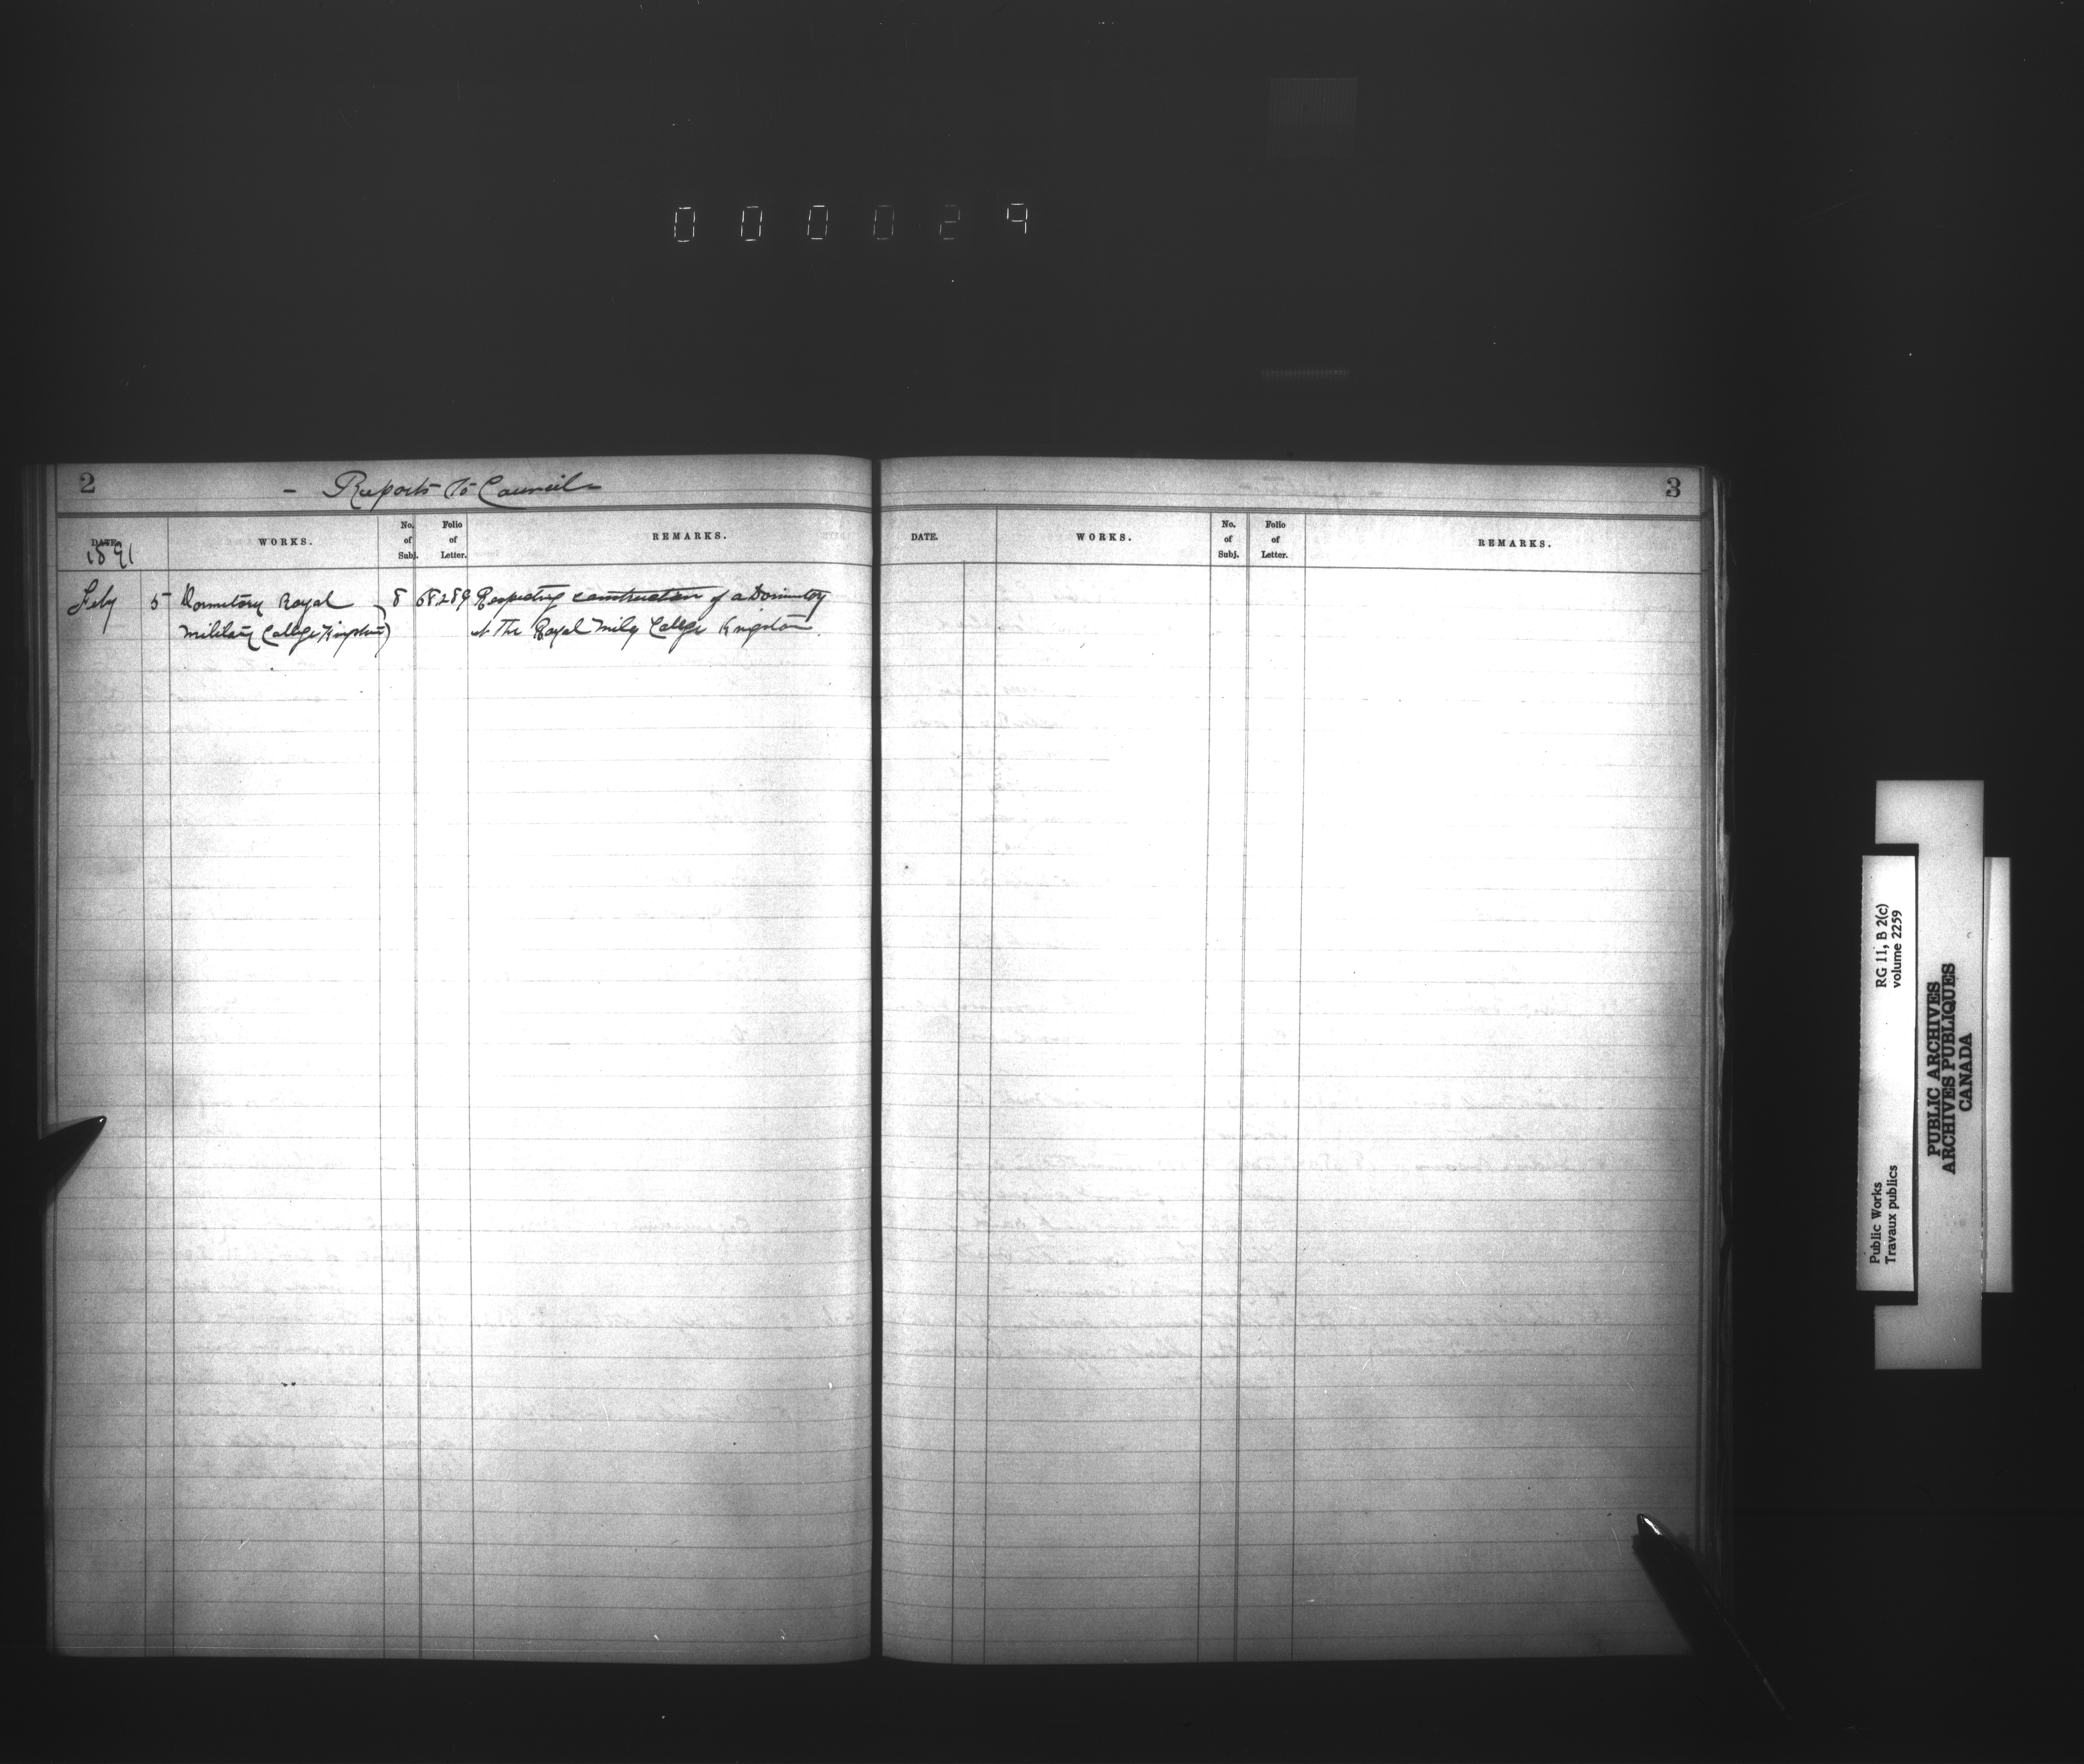 000029
2
- Reports to Council -
DATE. WORKS. No. of Subj. Folio of Letter. REMARKS.
1891
Feby 5 Dormitory Royal 8 68289 Respecting construction of a Dormitory
Military College Kingston) at The Royal Mily College Kingston.
3
DATE. WORKS. No. of Subj. Folio of Letter. REMARKS.
Public Works RG 11, B 2(c)
Travaux publics volume 2259
PUBLIC ARCHIVES
ARCHIVES PUBLIQUES
CANADA